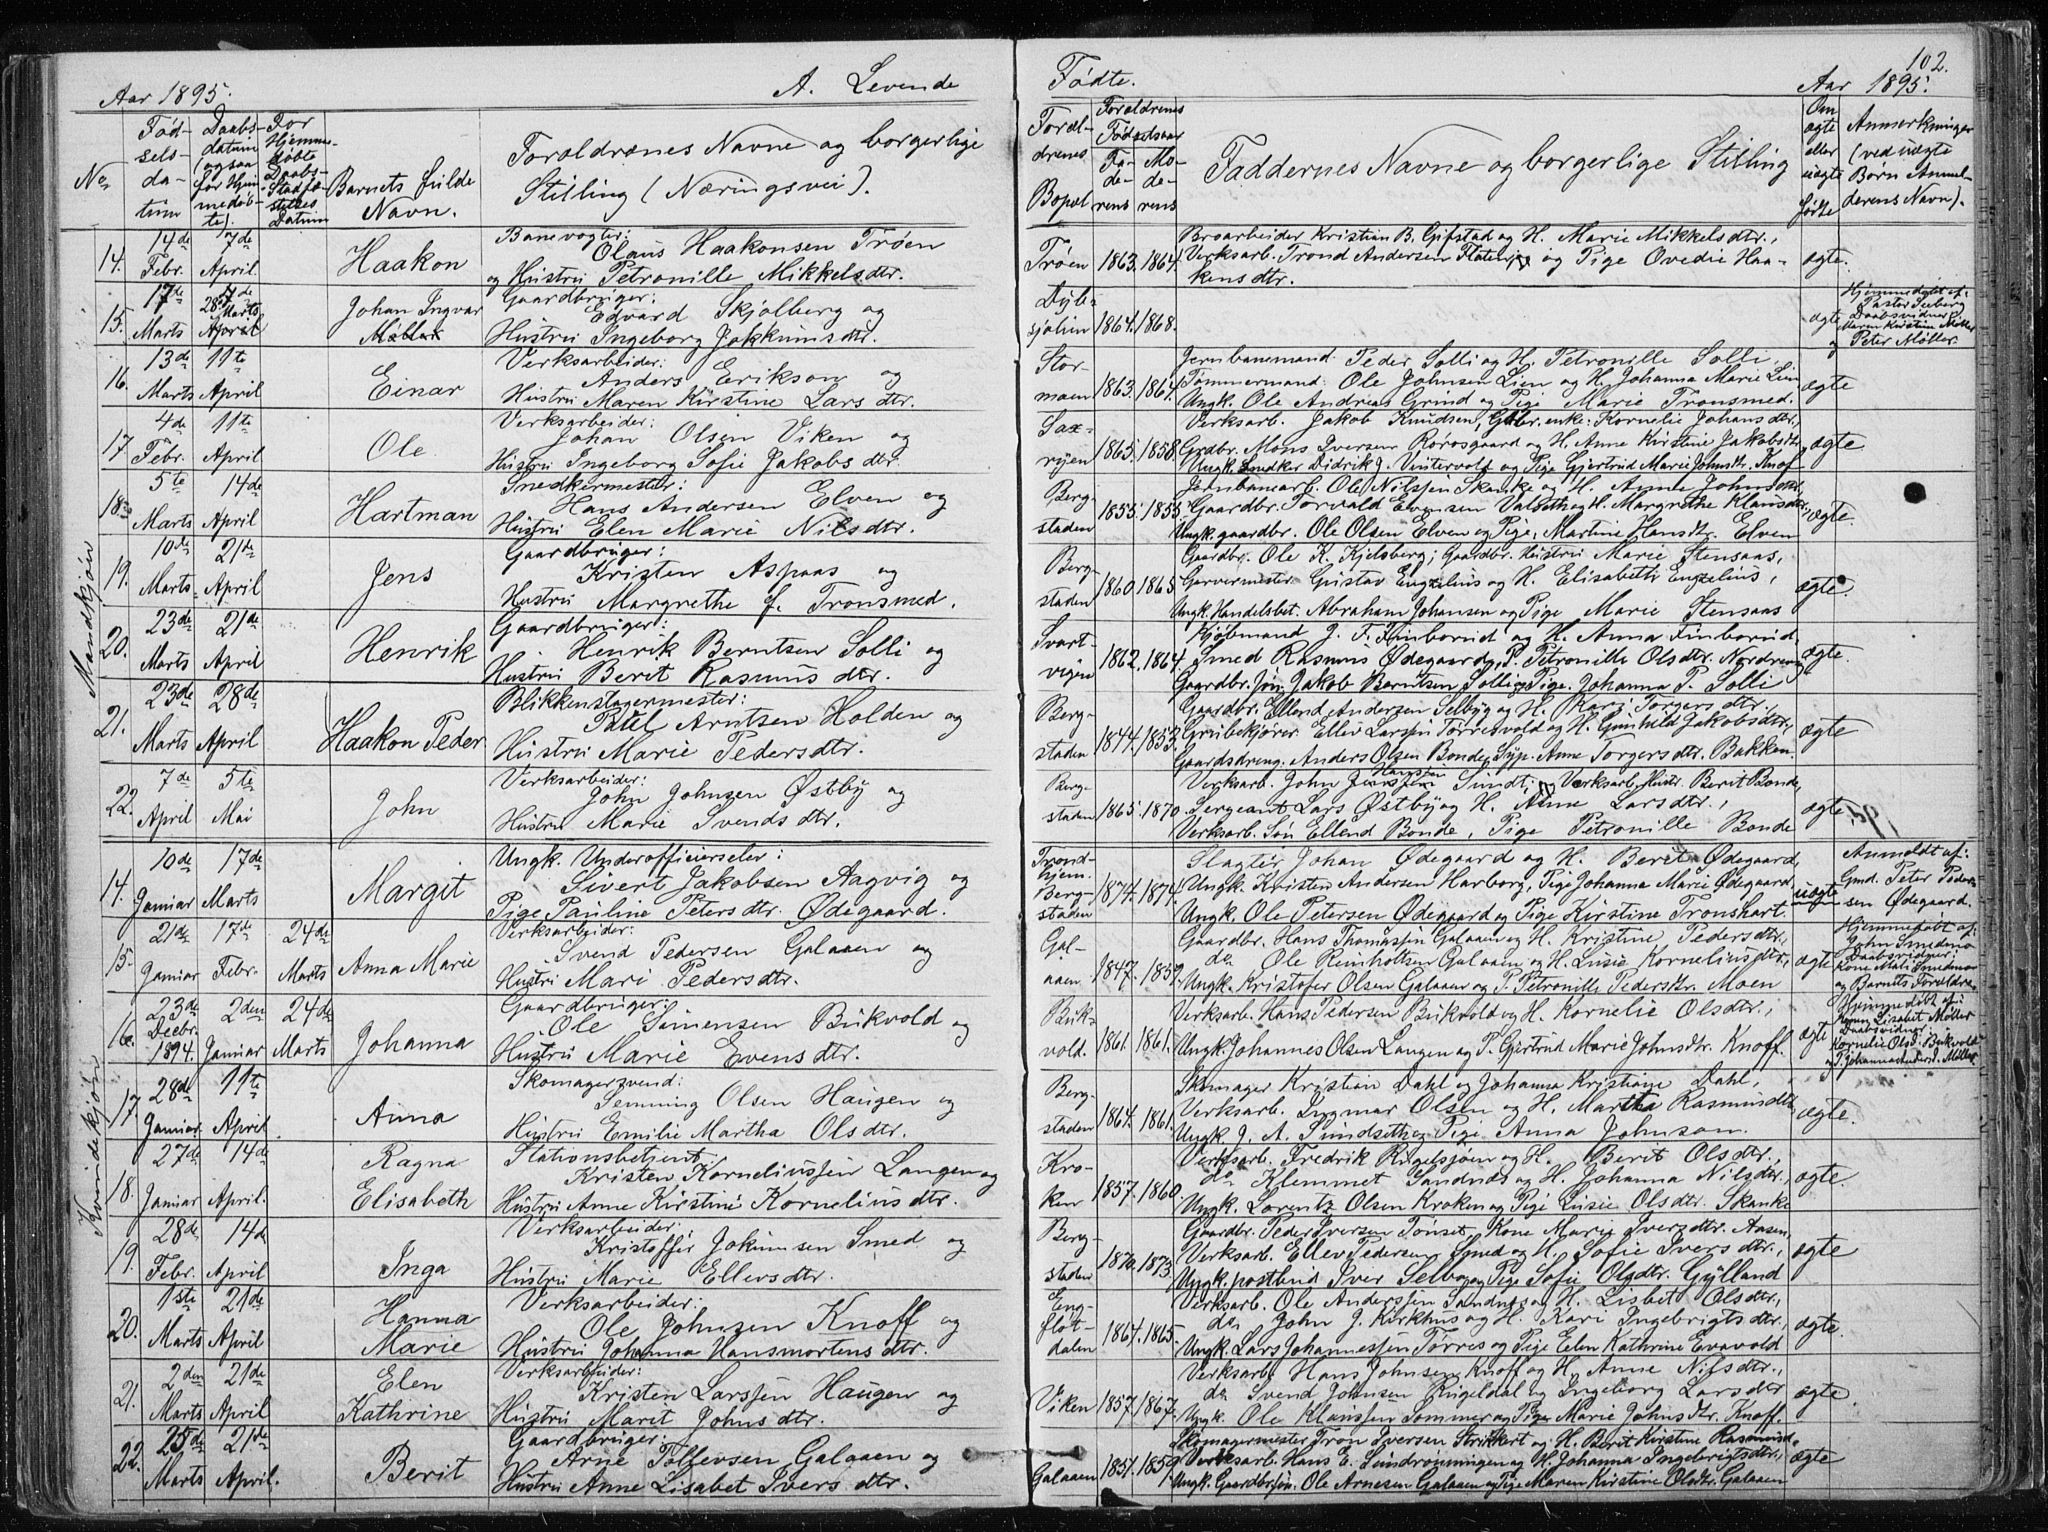 Aar 1895.
A. Levende
No
Fødselsdatum
Daabsdatum (ogsaa for Hjemmedøbte).
For Hjemmedøbte Daabs-Stadfæstelses Datum
Barnets fulde Navn.
Forældrenes Navne og borgerlige Stilling (Næringsvei).
Mandkjøn
14. 14de Febr. 7de April Haakon
Banevogter:
Olaus Haakonsen Trøen
og Hustru Petronille Mikkelsdtr.
15. 17de Marts 28de Marts Johan Ingvar Møller
Gaardbruger:
Edvard Skjølberg og
Hustru Ingeborg Jokkumsdtr.
16. 13de Marts 11te April Einar
Verksarbeider:
Anders Erikson og
Hustru Maren Kirstine Larsdtr.
17. 4de Febr. 11te April Ole
Verksarbeider:
Johan Olsen Viken og
Hustru Ingeborg Sofie Jakobsdtr.
18. 5te Marts 14de April Hartman
Snedkermester:
Hans Andersen Elven og
Hustru Elen Marie Nilsdtr.
19. 10de Marts 21de April Jens
Gaardbruger:
Kristen Aspaas og
Hustru Margrethe f. Tronsmed.
20. 23de Marts 21de April Henrik
Gaardbruger:
Henrik Berntsen Solli og
Hustru Berit Rasmusdtr.
21. 23de Marts 28de April Haakon Peder
Blikkenslagermester:
Paul Arntsen Holden og
Hustru Marie Pedersdtr.
22. 7de April 5te Mai John
Verksarbeider:
John Johnsen Østby og
Hustru Marie Svendsdtr.
Kvindekjøn
14. 10de Januar 17de Marts Margit
Ungk. Underofficierselev:
Sivert Jakobsen Aagvig og
Pige Pauline Petersdtr. Ødegaard.
15. 21de Januar 17de Febr. 24de Marts Anna Marie
Verksarbeider:
Svend Pedersen Galaaen og
Hustru Mari Pedersdtr.
16. 23de Decbr. 1894. 2den Januar 24de Marts Johanna
Gaardbruger:
Ole Simensen Bukvold og
Hustru Marie Evensdtr.
17. 28de Januar 11te April Anna
Skomagersvend:
Semming Olsen Haugen og
Hustru Emilie Martha Olsdtr.
18. 27de Januar 14de April. Ragna Elisabeth
Stationsbetjent:
Kristen Korneliussen Langen og
Hustru Anne Kirstine Korneliusdtr.
19. 28de Febr. 14de April Inga
Verksarbeider:
Kristoffer Jokumsen Smed og
Hustru Marie Ellevsdtr.
20. 1ste Marts 21de April Hanna Marie
Verksarbeider:
Ole Johnsen Knoff og
Hustru Johanna Hansmortensdtr.
21. 2den Marts 21de April Elen Kathrine
Verksarbeider:
Kristen Larssen Haugen og
Hustru Marit Johnsdtr.
22. 25de Marts 21de April. Berit
Gaardbruger:
Arne Tollevsen Galaaen og
Hustru Anne Lisabet Iversdtr.
102.
Fødte.
Aar 1895.
Forældrenes Bopæl
Forældrenes Fødselsaar
Faderens
Moderens
Faddernes Navne og borgerlige Stilling
Om ægte eller uægte fødte
Anmerkninger (ved uægte Børn Anmelderens Navn).
Trøen 1863. 1864.
Broarbeider Kristian B. Gifstad og H. Marie Mikkelsdtr.,
Verksarb. Trond Andersen Flaten og Pige Ovedie Haakensdtr.
ægte.
1864. 1868.
ægte
Hjemmedøbt af: Pastor Seeberg Daabsvidner: Maren Kirstine Møller og Peter Møller.
Stormoen 1863. 1864.
Jernbanemand Peder Solli og H. Petronille Solli,
Tømmermand: Ole Johnsen Lien og H. Johanna Marie Lien
Ungk. Ole Andreas Grind og Pige Marie Tronsmed.
ægte
1865. 1858.
Verksarb. Jakob Knudsen, Gdbr. enke: Kornelie Johansdtr,
Grdbr. Mons Iversen Rørosgaard og H. Anne Kirstine Jakobsdtr.
Ungk. Snedker Didrik J. Vintervold og Pige Gjertrud Marie Johnsdtr. Knof
ægte
Bergstaden 1855. 1855.
Jernbanearb. Ole Nilssen Skanke og H. Anne Johnsdtr,
Gaardbr. Torvald Evensen Valseth og H. Margrethe Klausdtr,
Ungk. gaardbr. Ole Olsen Elven og Pige, Martine Hansdtr. Elven
ægte.
Bergstaden 1860. 1865
Gaardbr. Ole K. Kjelsberg; Gaardbr. Hustru Marie Stensaas,
Garvermester Gustav Engzelius og H. Elisabeth Engzelius,
Ungk. Handelsbet. Abraham Johansen og Pige Marie Stensaas
ægte.
Svartvigen 1862. 1864.
Kjøbmand J. T. Finborud og H. Anna Finborud,
Smed Rasmus Ødegaard, P. Petronille Olsdtr.
Gaardbr. søn Jakob Berntsen Solli og Pige Johanna P. Solli
ægte.
Bergstaden 1844. 1853.
Gaardbr. Ellend Andersen Selbyg og H. Kari Torgersdtr.
Grubekjører Ellev Larssen Torresvold og H. Gunhild Jakobsdtr.,
Gaardsdreng. Anders Olsen Bonde, Syp. Anne Torgersdtr. Bakken
ægte
Bergstaden 1865. 1870.
Verksarb. John Hanssen Sundt; Verksarb. Hustr. Berit Bonde,
Sergeant Lars Østby og H. Anne Larsdtr.,
Verksarb. Søn Ellend Bonde, Pige Petronille Bonde
ægte,
Trondhjem. Bergstaden 1874. 1874.
Slagter Johan Ødegaard og H. Berit Ødegaard,
Ungk. Kristen Andersen Harborg, Pige Johanna Marie Ødegaard
Ungk. Ole Petersen Ødegaard og Pige Kirstine Tronshart.
uægte
Anmeldt af: Gmd. Peter Pedersen Ødegaard.
Galaaen 1847. 1857.
Gaardbr. Hans Thomassen Galaaen og H. Kristine Pedersdtr.,
do Ole Reinholtsen Galaaen og H. Lusie Korneliusdtr,
Ungk. Kristofer Olsen Galaaen og P. Petronille Pedersdtr. Moen
ægte
Hjemmedøbt af: John Smedmo Daabsvidner: Kone Mali Smedmo og Barnets Forældre.
Bukvold. 1861. 1861.
Verksarb. Hans Pedersen Bukvold og H. Kornelie Olsdtr.,
Ungk. Johannes Olsen Langen og P. Gjertrud Marie Johnsdtr. Knoff.
ægte
Hjemmedøbt af: Lisabet Møller Daabsvidner: Kornelie Olsd. Bukvold og P. Johanna Andersd. Møller.
Bergstaden 1864. 1861.
Skomager Kristian Dahl og Johanna Kristiane Dahl,
Verksarb. Ingmar Olsen og H. Martha Rasmusdtr.
Ungk. J. A. Sundseth og Pige Anna Johnson.
ægte.
Kroken 1857. 1860.
Verksarb. Fredrik Rugelsjøen og H. Berit Olsdtr.,
do Klemmet Sandnes og H. Johanna Nilsdtr,
Ungk. Lorentz Olsen Kroken og Pige Lusie Olsdtr. Skanke
ægte.
Bergstaden 1870. 1873.
Gaardbr. Peder Iversen Tønset, Kone Marie Iversdtr. Aasen
Verksarb. Ellev Pedersen Smed og H. Sofie Iversdtr.,
Ungk. postbud Iver Selbo og Pige Sofie Olsdtr. Gylland
ægte
Engflotdalen 1864. 1865.
Verksarb. Ole Anderssen Sandnes og H. Lisbet Olsdtr.,
do John J. Kirkhus og H. Kari Ingebrigtsdtr,
Ungk. Lars Johannessen Tørres og Pige Elen Kathrine Evavold
ægte.
Viken 1857. 1867.
Verksarb. Hans Johnsen Knoff og H. Anne Nilsdtr.,
do Svend Johnsen Rugeldal og Ingeborg Larsdtr
Ungk. Ole Klaussen Sommer og Pige Marie Johnsdtr. Knoff.
ægte
Galaaen 1851. 1859.
Skomagermester Tron Iversen Strickert og H. Berit Kirstine Rasmusd.
Verksarb. Hans E. Sundrønningen og H. Johanna Ingebrigtsdtr.,
Ungk. Gaardbrsøn. Ole Arnesen Galaaen og Pige Maren Kirstine Olsdtr. Galaaen
ægte